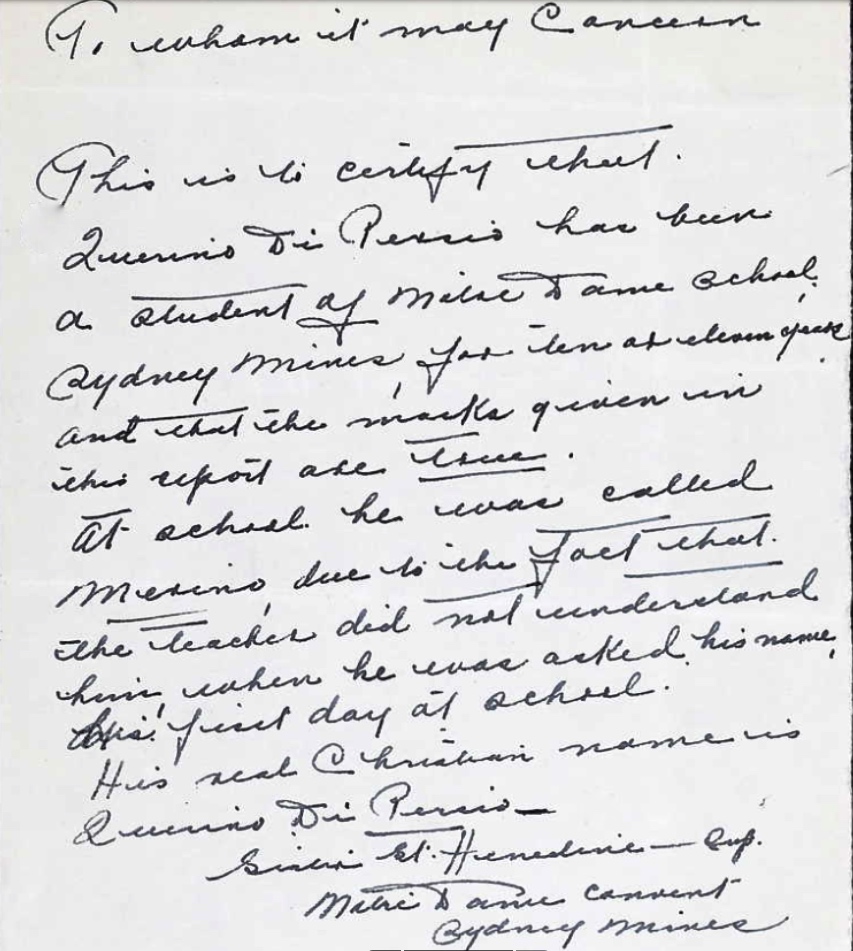 To whom it may Concern
This is to certify that.
Querino Di Persio has been
a student of Notre Dame School,
Sydney Mines for ten or eleven years
and that the marks given in
this report are true.
At school he was called
Merino, due to the fact that.
the teacher did not understand
him, when he was asked his name,
his first day at school.
His real Christian name is
Querino Di Persio—
Sister St. — Sup.
Notre Dame Convent
Sydney Mines